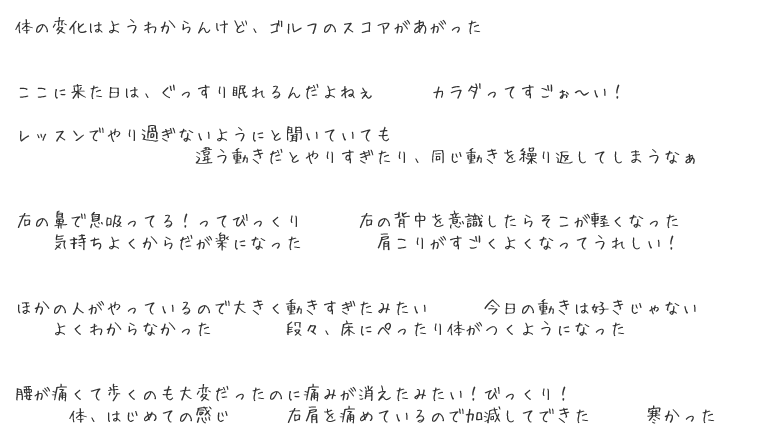 体の変化はようわからんけど、ゴルフのスコアがあがった
ここに来た日は、ぐっすり眠れるんだよねぇ　　　カラダってすごぉ〜い！
レッスンでやり過ぎないようにと聞いていても
違う動きだとやりすぎたり、同じ動きを繰り返してしまうなぁ
右の鼻で息吸ってる！ってびっくり　　　右の背中を意識したらそこが軽くなった
気持ちよくからだが楽になった　　　　肩こりがすごくよくなってうれしい！
ほかの人がやっているので大きく動きすぎたみたい　　　今日の動きは好きじゃない
よくわからなかった　　　　段々、床にぺったり体がつくようになった
腰が痛くて歩くのも大変だったのに痛みが消えたみたい！びっくり！
体、はじめての感じ　　　右肩を痛めているので加減してできた　　　寒かった